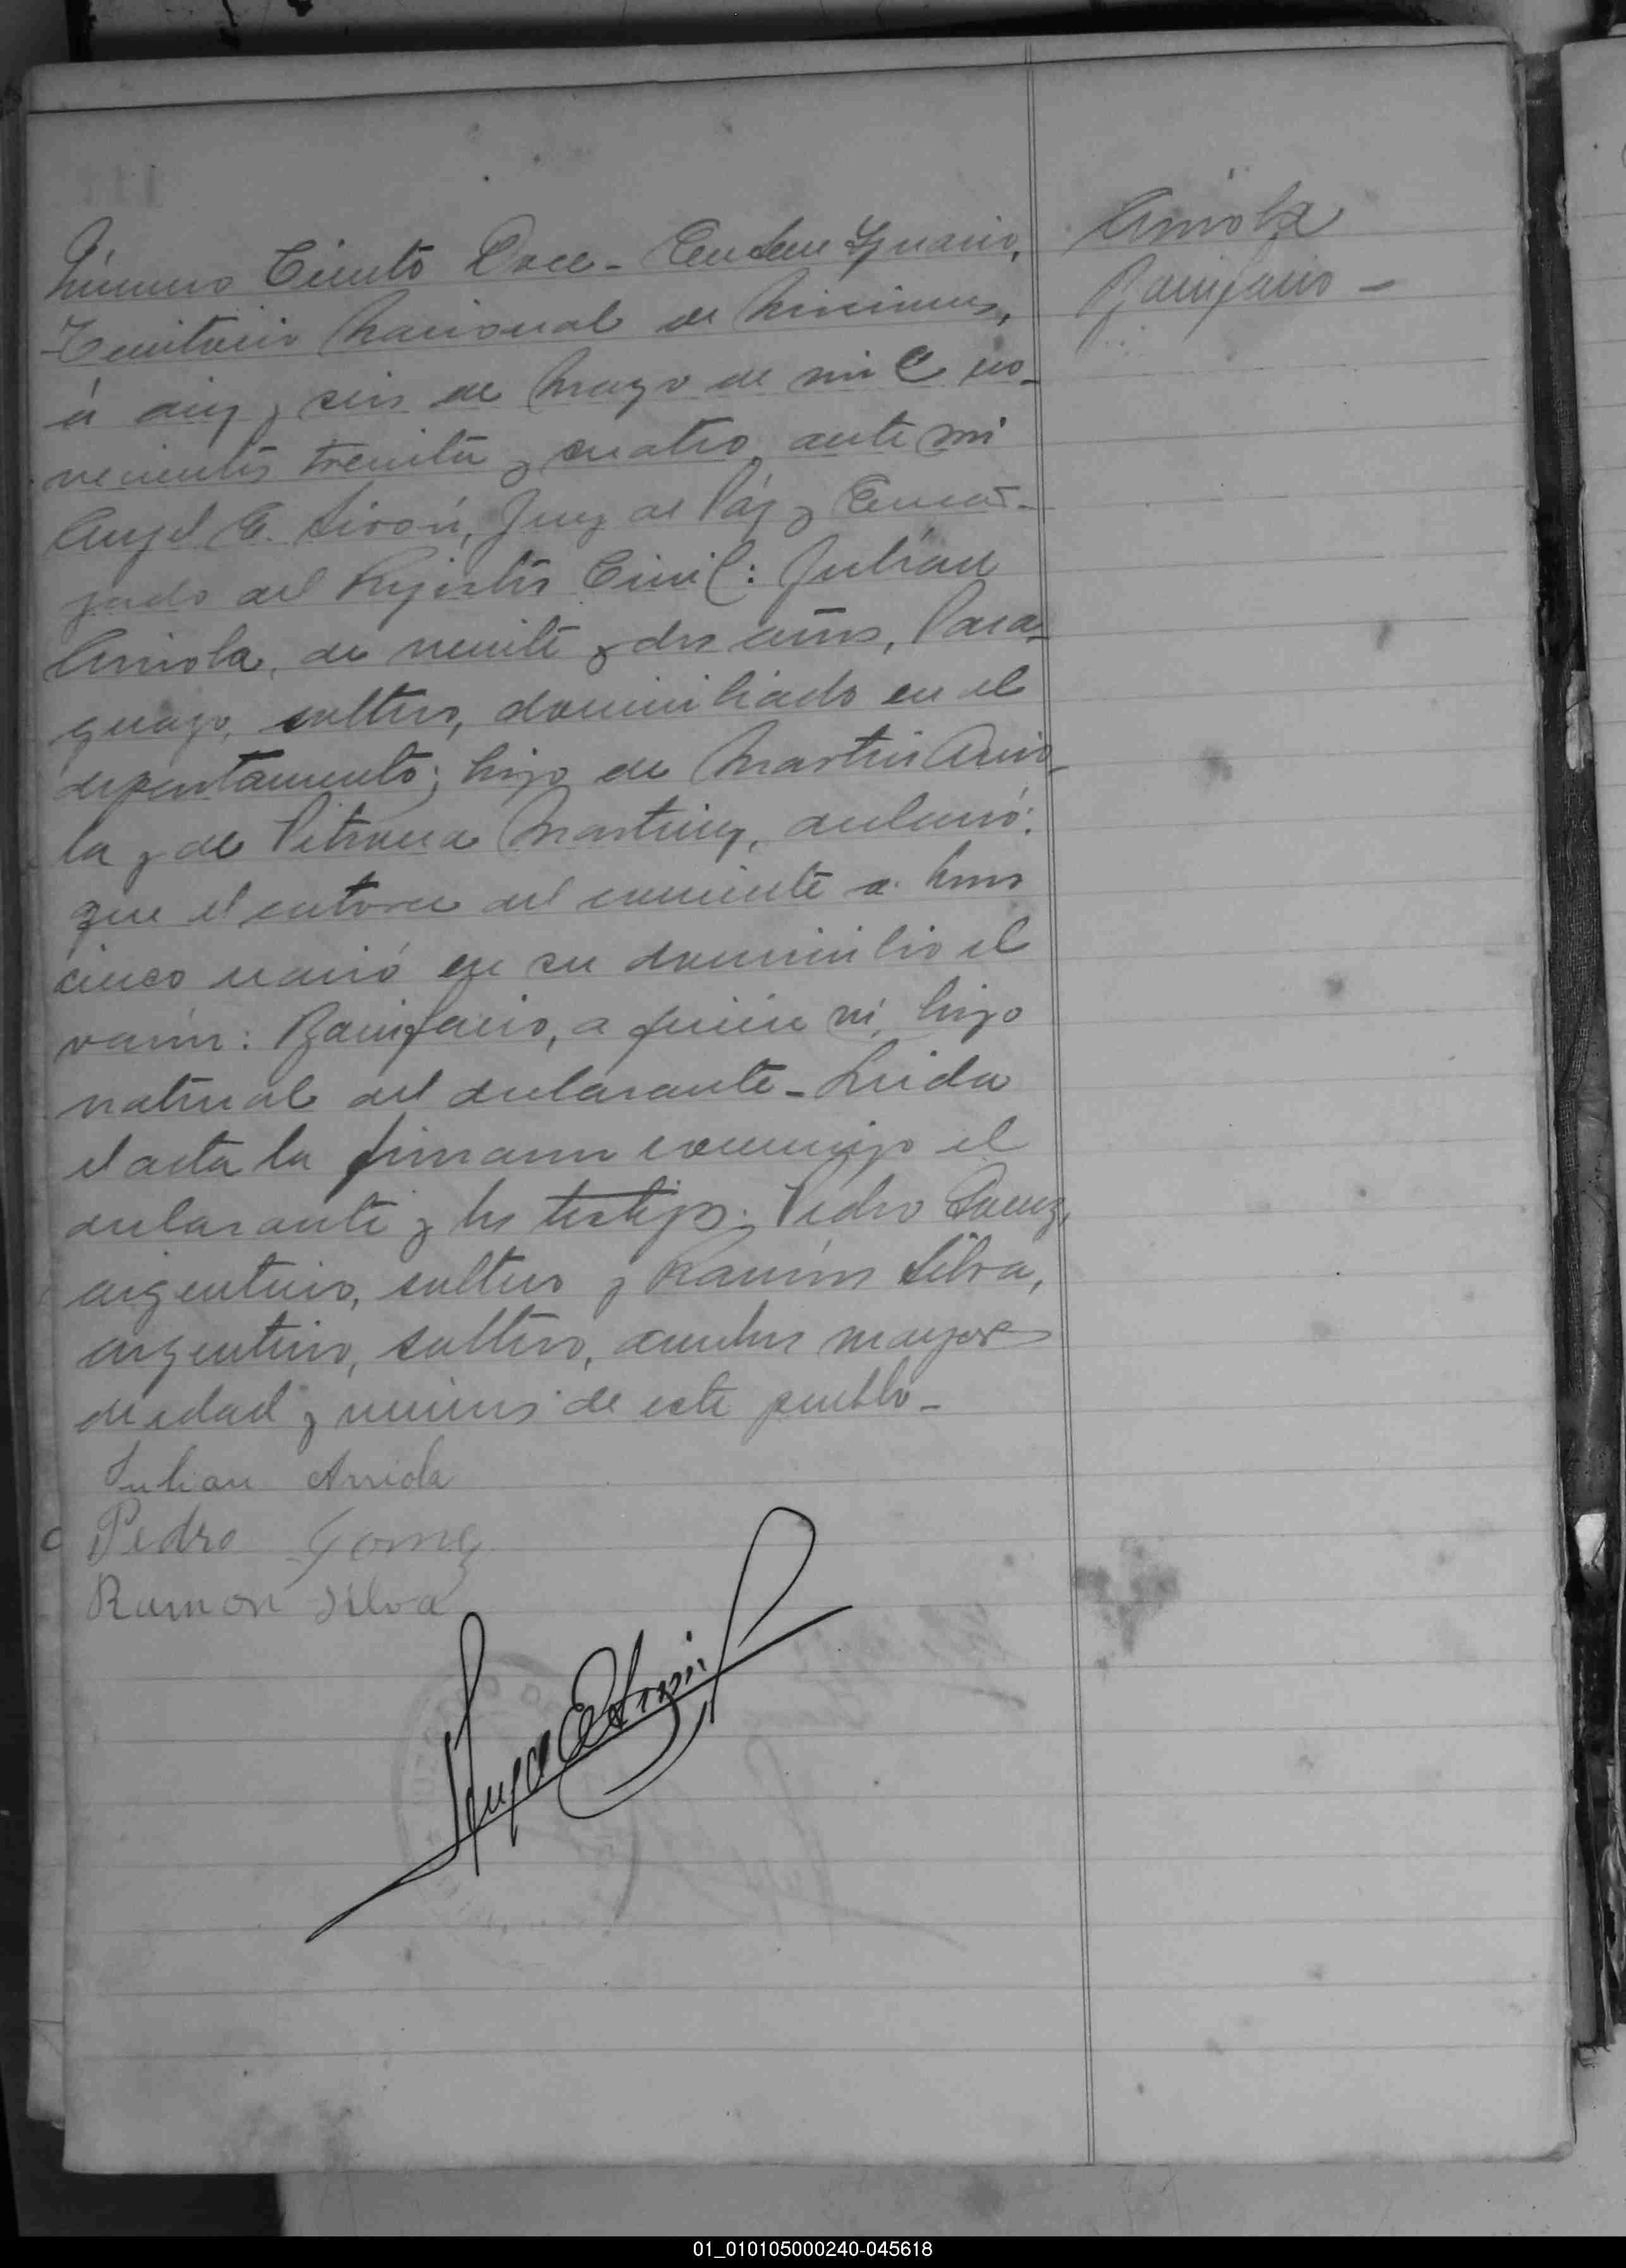 Número Ciento Doce - San Ignacio,
Territorio Nacional de Misiones,
á diez y seis de Mayo de mil no-
vecientos treinta y cuatro, ante mi
Angel E. Sirón, Juez de Páz y Encar-
gado del Registro Civil: Julián
Arriola, de veinte y dos años, Para-
guayo, soltero, domiciliado en el
departamento; hijo de Martin Arrio-
la y de Petrona Martinez, declaró:
que el catorce del corriente a horas
cinco nació en su domicilio el
varón: Bonifacio, a quien ví, hijo
natural del declarante - Leida
el acta la firmaron conmigo el
declarante y los testigos: Pedro Gomez,
argentino, soltero y Ramón Silva,
argentino, soltero, ambos mayores
de edad y vecinos de este pueblo -
Julian Arriola
Pedro Gomez
Ramon Silva
Angel E Sirón
Arriola
Bonifacio -
01_010105000240-045618